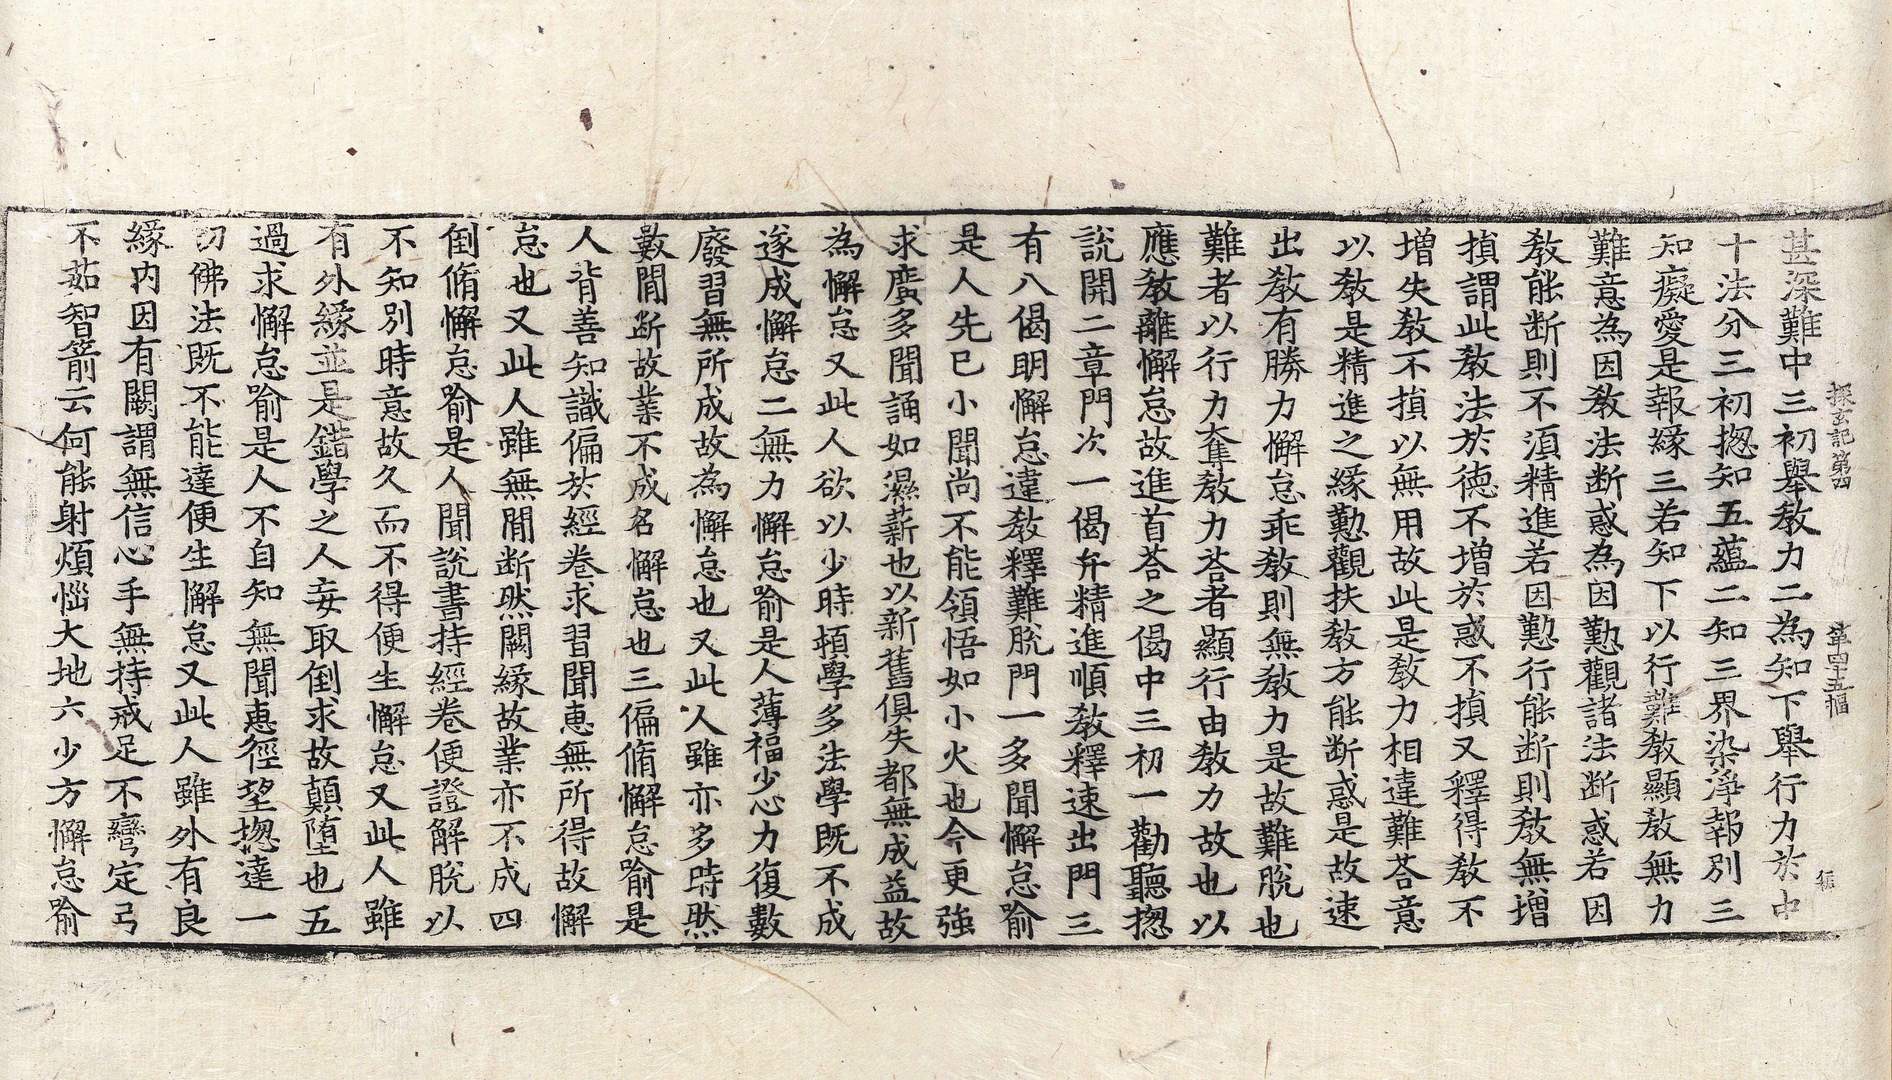 探玄記第四 第四十五幅
甚深難中三初舉教力二為知下舉行力於中
十法分三初揔知五蘊二知三界染淨報別三
知癡愛是報緣三若知下以行難教顯教無力
難意為因教法断惑為因懃觀諸法断惑若因
教能断則不湏精進若因懃行能断則教無增
損謂此教法於德不增於惑不損又釋得教不
增失教不損以無用故此是教力相違難荅意
以教是精進之緣懃觀扶教方能断惑是故速
出教有勝力懈怠乖教則無教力是故難脫也
難者以行力奪教力荅者顯行由教力故也以
應教離懈怠故進首荅之偈中三初一勸聽揔
說開二章門次一偈弁精進順教釋速出門三
有八偈明懈怠違教釋難脫門一多聞懈怠喻
是人先已小聞尚不能領悟如小火也今更強
求廣多聞誦如濕薪也以新舊俱失都無成益故
為懈怠又此人欲以少時頓學多法學既不成
遂成懈怠二無力懈怠喻是人薄福少心力復數
廢習無所成故為懈怠也又此人雖亦多時然
數間断故業不成名懈怠也三偏脩懈怠喻是
人背善知識偏於經卷求習聞恵無所得故懈
怠也又此人雖無間断然闕緣故業亦不成四
倒脩懈怠喻是人聞說書持經卷便證解脫以
不知別時意故久而不得便生懈怠又此人雖
有外緣並是錯學之人妄取倒求故顛墮也五
過求懈怠喻是人不自知無聞恵徑望揔達一
切佛法既不能達便生懈怠又此人雖外有良
緣内因有闕謂無信心手無持戒足不彎定弓
不茹智箭云何能射煩惱大地六少方懈怠喻